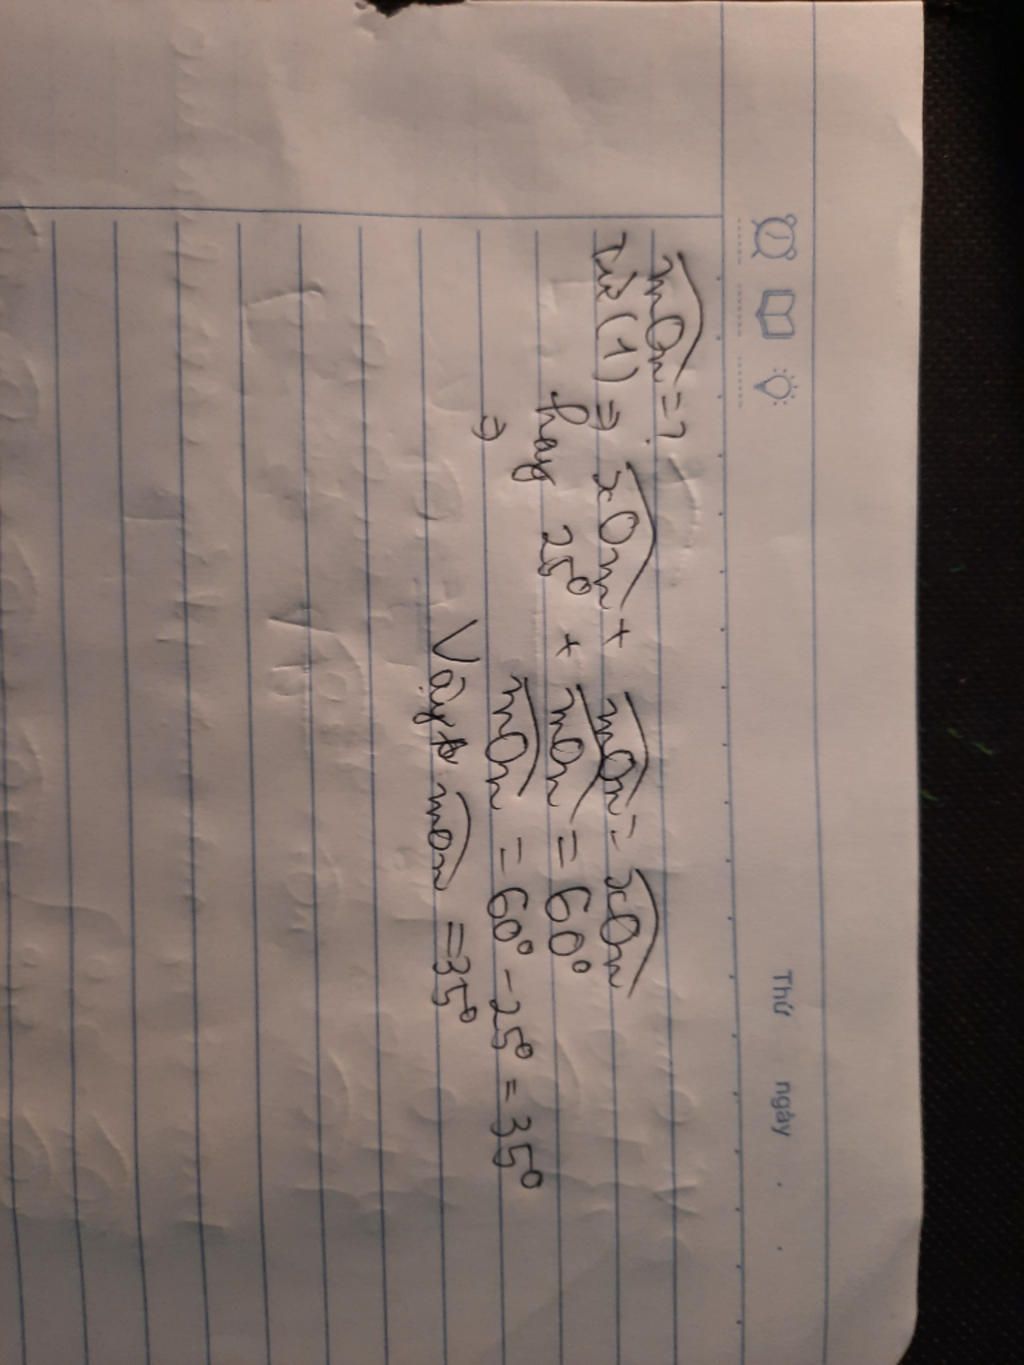 Thứ ngày . .
mOn = ?
Từ (1) ⇒ xOm + mOn = xOn
hay 25° + mOn = 60°
⇒ mOn = 60° - 25° = 35°
Vậy mOn = 35°